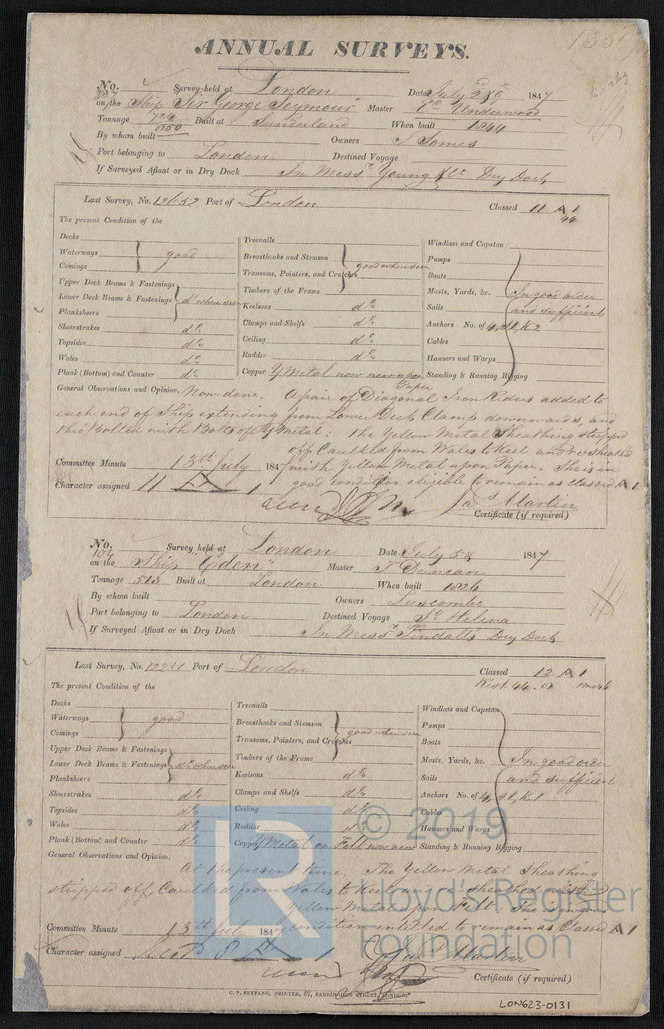 ANNUAL SURVEYS.
No. Survey held at London Date July 1847
on the Ship "Sir George Seymour" Master Underwood
Tonnage Built at Sunderland When built 1844
By whom built Owners Somes
Port belonging to London Destined Voyage
If Surveyed Afloat or in Dry Dock In Messrs Young & Co Dry Dock
Last Survey, No. 12652 Port of London Classed 11 A 1
44
The present Condition of the
Decks
Waterways good
Comings
Upper Deck Beams & Fastenings
Lower Deck Beams & Fastenings do when seen
Planksheers
Sheerstrakes do
Topsides do
Wales do
Plank (Bottom) and Counter do
Treenails
Breasthooks and Stemson good when seen
Transoms, Pointers, and Crutches
Timbers of the Frame
Keelsons do
Clamps and Shelfs do
Ceiling do
Rudder do
Copper Y Metal now new upon Paper
Windlass and Capstan
Pumps
Boats
Masts, Yards, &c. In good order
Sails and sufficient
Anchors No. of
Cables
Hawsers and Warps
Standing & Running Rigging
General Observations and Opinion, Now done. A pair of Diagonal Iron Riders added to
each end of Ship extending from Lower Deck Clamp downwards, and
thro Bolted with Bolts of Y Metal: the Yellow Metal Sheathing stripped
off Caulked from Wales to Keel and re Sheathed
Committee Minute 13th July 1847 with Yellow Metal upon Paper. She is in
Character assigned 11 A 1 good condition eligible to remain as classed A 1
Jas Martin
Certificate (if required)
No. Survey held at London Date July 1847
on the Ship "Eden" Master J Duncan
Tonnage 513 Built at London When built 1826
By whom built Owners Luscombe
Port belonging to London Destined Voyage St Helena
If Surveyed Afloat or in Dry Dock In Messrs Tindall's Dry Dock
Last Survey, No. Port of London Classed 12 A 1
The present Condition of the
Decks
Waterways good
Comings
Upper Deck Beams & Fastenings
Lower Deck Beams & Fastenings do when seen
Planksheers
Sheerstrakes do
Topsides do
Wales do
Plank (Bottom) and Counter do
Treenails
Breasthooks and Stemson good when seen
Transoms, Pointers, and Crutches
Timbers of the Frame
Keelsons do
Clamps and Shelfs do
Ceiling do
Rudder do
Copper Y Metal on Felt now new
Windlass and Capstan
Pumps
Boats
Masts, Yards, &c. In good order
Sails and sufficient
Anchors No. of
Cables
Hawsers and Warps
Standing & Running Rigging
General Observations and Opinion, At the present time. The Yellow Metal Sheathing
stripped off, Caulked from Wales to Keel and re Sheathed with
Yellow Metal upon Felt. She is in good
Committee Minute 13th July 1847 condition entitled to remain as Classed A 1
Character assigned A 1 Jas Martin
Certificate (if required)
C. F. SEYFANG, PRINTER, 57, FARRINGDON STREET, LONDON.
LON623-0131
© 2019
Lloyd's Register
Foundation